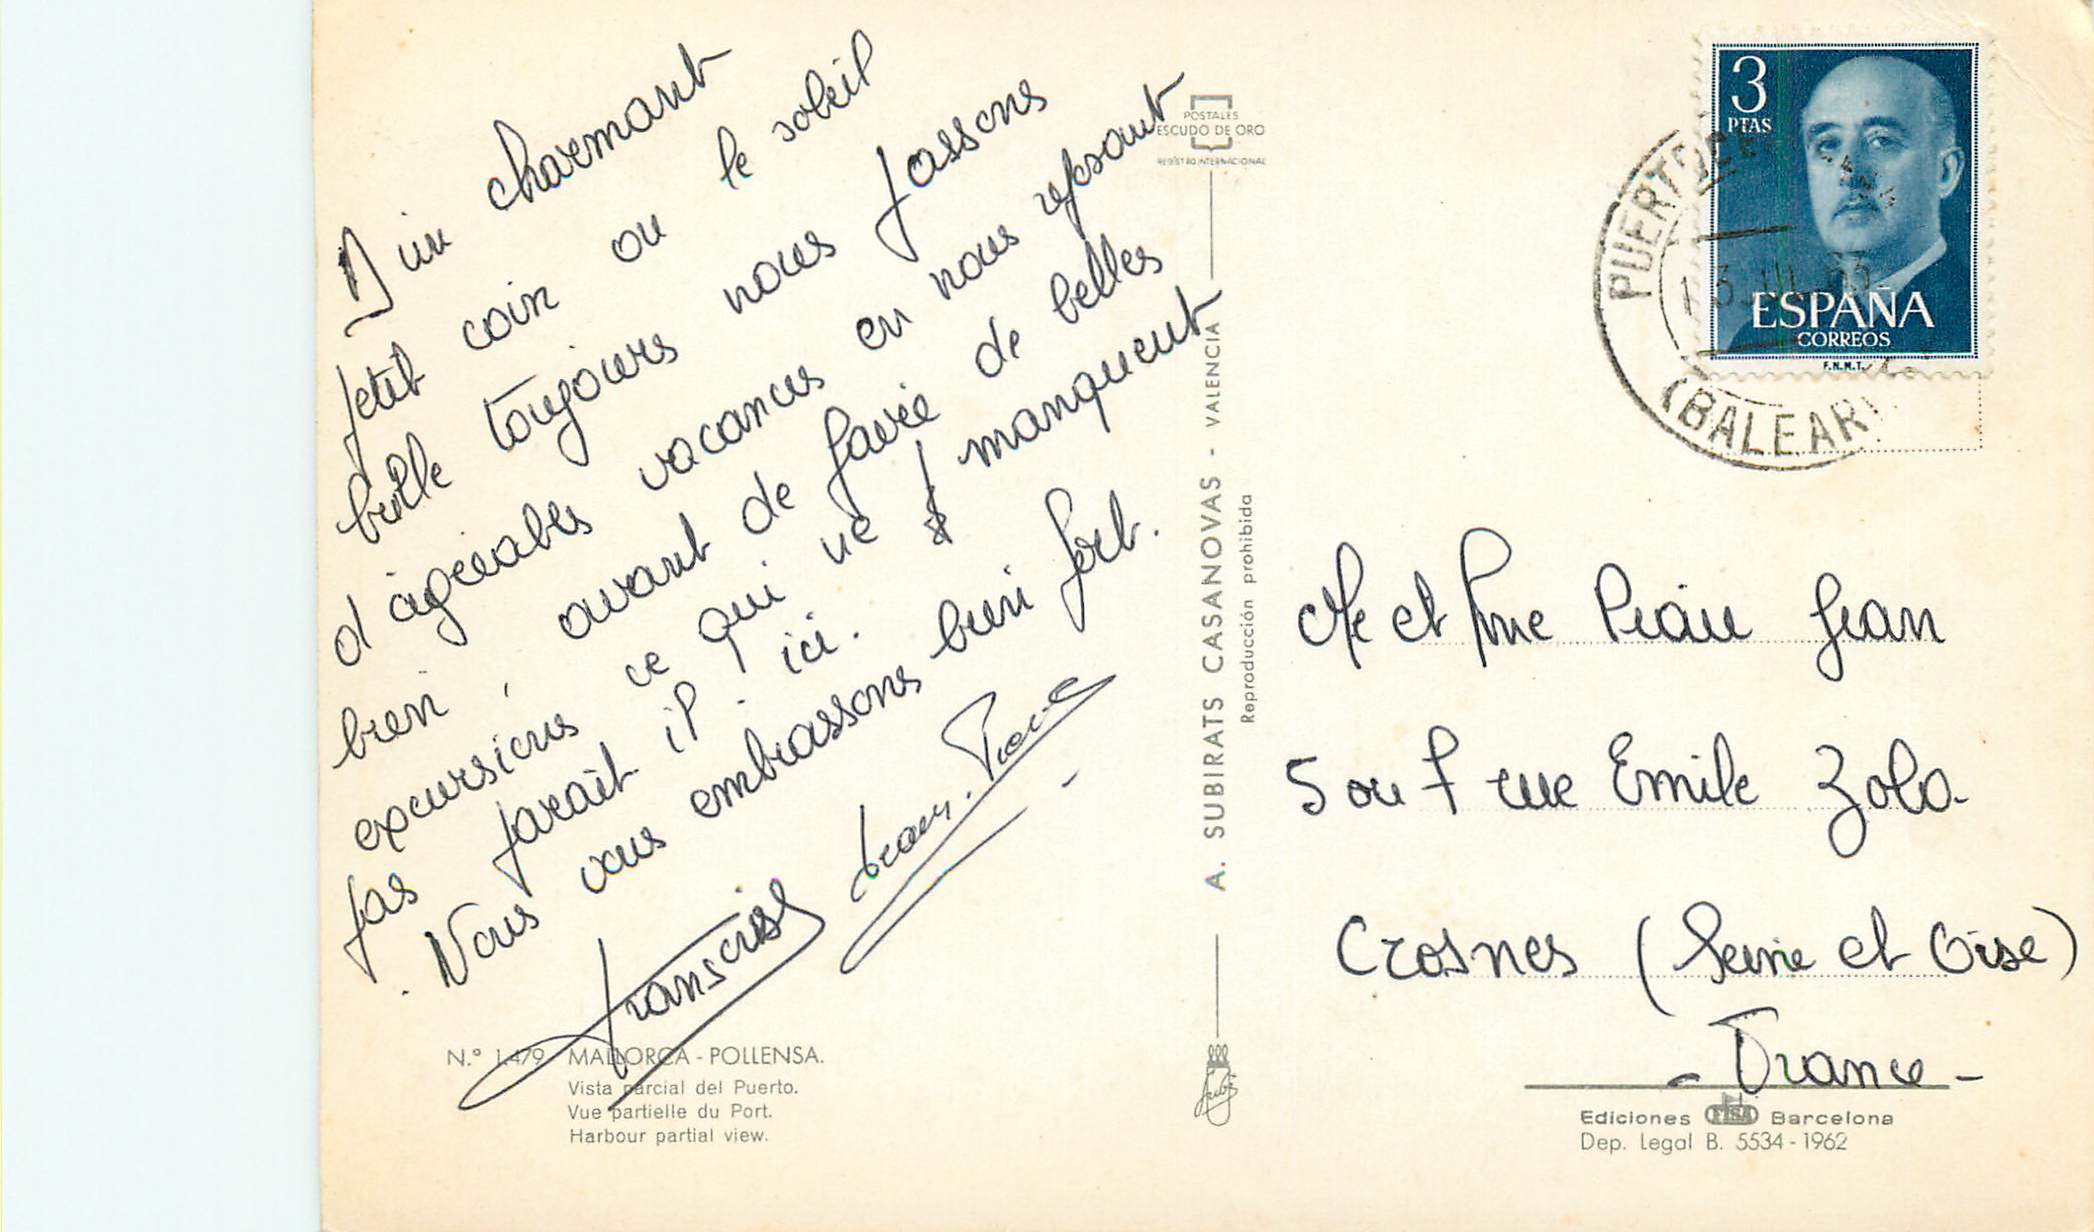 D'un charmant
petit coin ou le soleil
brille toujours nous passons
d'agréables vacances en nous reposant
bien, avant de faire de belles
excursions ce qui ne manquent
pas parait-il ici.
. Nous vous embrassons bien fort.
Françoise Jean-Pierre
N.º 1.479 MALLORCA - POLLENSA.
Vista parcial del Puerto.
Vue partielle du Port.
Harbour partial view.
POSTALES
ESCUDO DE ORO
REGISTRO INTERNACIONAL
A. SUBIRATS CASANOVAS - VALENCIA
Reproducción prohibida
3
PTAS
ESPAÑA
CORREOS
F.N.M.T.
PUERTO DE
(BALEAR
Mr et Mme Piau Jean
5 ou 7 rue Emile Zola
Crosnes (Seine et Oise)
- France -
Ediciones FISA Barcelona
Dep. Legal B. 5534 - 1962